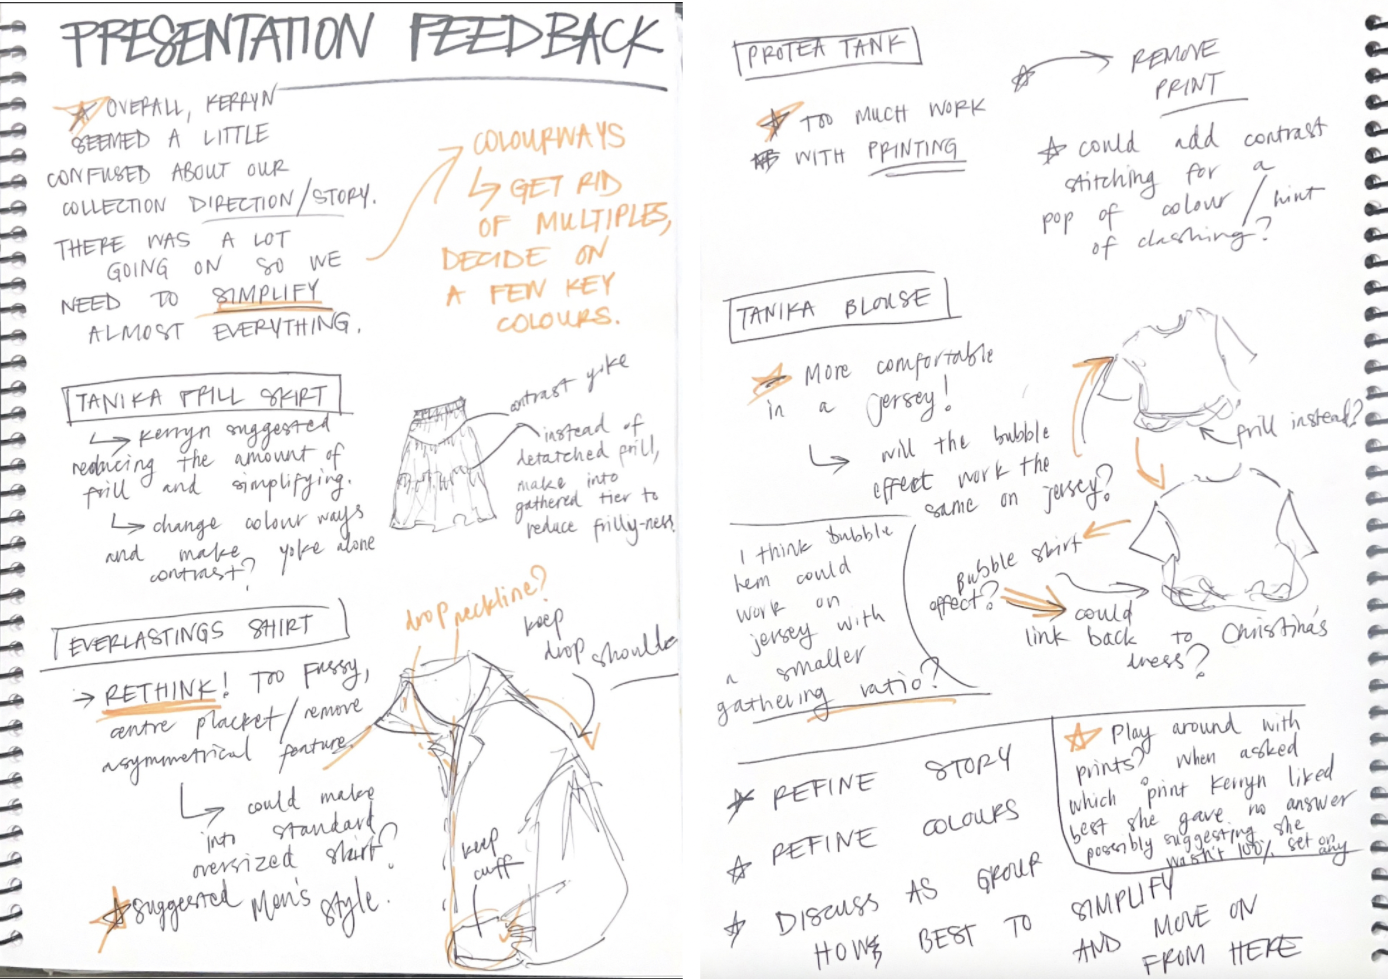 PRESENTATION FEEDBACK
OVERALL, KERRYN
SEEMED A LITTLE
CONFUSED ABOUT OUR
COLLECTION DIRECTION/STORY.
THERE WAS A LOT
GOING ON SO WE
NEED TO SIMPLIFY
ALMOST EVERYTHING.
COLOURWAYS
GET RID
OF MULTIPLES,
DECIDE ON
A FEW KEY
COLOURS.
TANIKA FRILL SKIRT
Kerryn suggested
reducing the amount of
frill and simplifying.
change colour ways
and make yoke alone
contrast?
contrast yoke
instead of
detatched frill,
make into
gathered tier to
reduce frilly-ness.
EVERLASTINGS SHIRT
RETHINK! TOO FUSSY,
centre placket/remove
asymmetrical feature.
could make
into standard
oversized shirt?
suggested Men's style.
drop neckline?
keep
drop shoulder
keep
cuff
PROTEA TANK
TOO MUCH WORK
WITH PRINTING
REMOVE
PRINT
could add contrast
stitching for a
pop of colour/hint
of clashing?
TANIKA BLOUSE
More comfortable
in a jersey!
will the bubble
effect work the
same on jersey?
frill instead?
I think bubble
hem could
work on
jersey with
a smaller
gathering ratio?
Bubble skirt
effect?
could
link back to Christina's
dress?
REFINE STORY
REFINE COLOURS
DISCUSS AS GROUP
HOW BEST TO SIMPLIFY
AND MOVE ON
FROM HERE
Play around with
prints? When asked
which print Kerryn liked
best she gave no answer
possibly suggesting she
wasn't 100% set on any